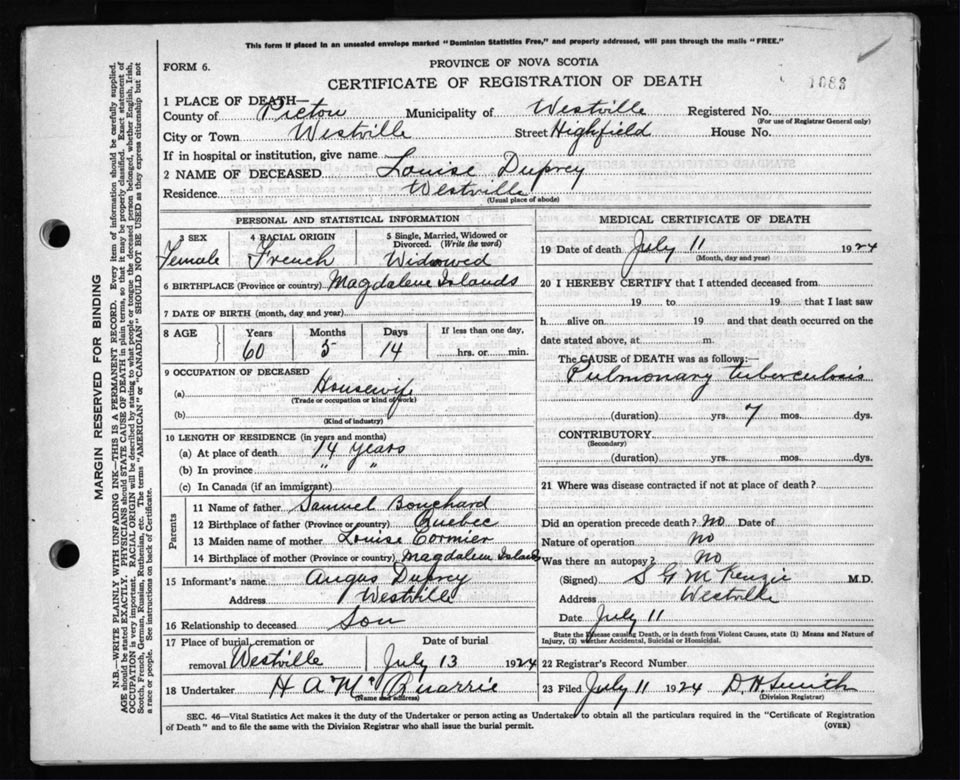 This form if placed in an unsealed envelope marked "Dominion Statistics Free," and properly addressed, will pass through the mails "FREE."
FORM 6.
PROVINCE OF NOVA SCOTIA
CERTIFICATE OF REGISTRATION OF DEATH
1088
1 PLACE OF DEATH—
County of Pictou Municipality of Westville Registered No.
(For use of Registrar General only)
City or Town Westville Street Highfield House No.
If in hospital or institution, give name
2 NAME OF DECEASED Louise Duprey
Residence Westville
(Usual place of abode)
PERSONAL AND STATISTICAL INFORMATION
3 SEX 4 RACIAL ORIGIN 5 Single, Married, Widowed or Divorced. (Write the word)
Female French Widowed
6 BIRTHPLACE (Province or country) Magdalene Islands
7 DATE OF BIRTH (month, day and year)
8 AGE Years Months Days If less than one day,
60 5 14 hrs. or min.
9 OCCUPATION OF DECEASED
(a) Housewife
(Trade or occupation or kind of work)
(b)
(Kind of industry)
10 LENGTH OF RESIDENCE (in years and months)
(a) At place of death 14 years
(b) In province " "
(c) In Canada (if an immigrant)
Parents
11 Name of father Samuel Bouchard
12 Birthplace of father (Province or country) Quebec
13 Maiden name of mother Louise Cormier
14 Birthplace of mother (Province or country) Magdalen Islands
15 Informant's name Angus Duprey
Address Westville
16 Relationship to deceased Son
17 Place of burial, cremation or removal Westville
Date of burial July 13 1924
18 Undertaker H A Mc Quarrie
(Name and address)
MEDICAL CERTIFICATE OF DEATH
19 Date of death July 11 1924
(Month, day and year)
20 I HEREBY CERTIFY that I attended deceased from
19 to 19 that I last saw
h alive on 19 and that death occurred on the
date stated above, at m.
The CAUSE of DEATH was as follows:—
Pulmonary tuberculosis
(duration) yrs. 7 mos. dys.
CONTRIBUTORY
(Secondary)
(duration) yrs. mos. dys.
21 Where was disease contracted if not at place of death?
Did an operation precede death? No Date of
Nature of operation no
Was there an autopsy? No
(Signed) S G McKenzie M.D.
Address Westville
Date July 11
State the Disease causing Death, or in death from Violent Causes, state (1) Means and Nature of
Injury, (2) whether Accidental, Suicidal or Homicidal.
22 Registrar's Record Number
23 Filed July 11 1924 D. H. Smith
(Division Registrar)
SEC. 46—Vital Statistics Act makes it the duty of the Undertaker or person acting as Undertaker to obtain all the particulars required in the "Certificate of Registration
of Death" and to file the same with the Division Registrar who shall issue the burial permit.
(OVER)
MARGIN RESERVED FOR BINDING
N.B.—WRITE PLAINLY WITH UNFADING INK—THIS IS A PERMANENT RECORD. Every item of information should be carefully supplied.
AGE should be stated EXACTLY. PHYSICIANS should STATE CAUSE OF DEATH in plain terms, so that it may be properly classified. Exact statement of
OCCUPATION is very important. RACIAL ORIGIN will be described by stating to what people or tongue the deceased person belonged, whether English, Irish,
Scotch, French, German, Russian, Ruthenian, etc. The terms "AMERICAN" or "CANADIAN" SHOULD NOT BE USED as they express citizenship but not
a race or people. See instructions on back of Certificate.